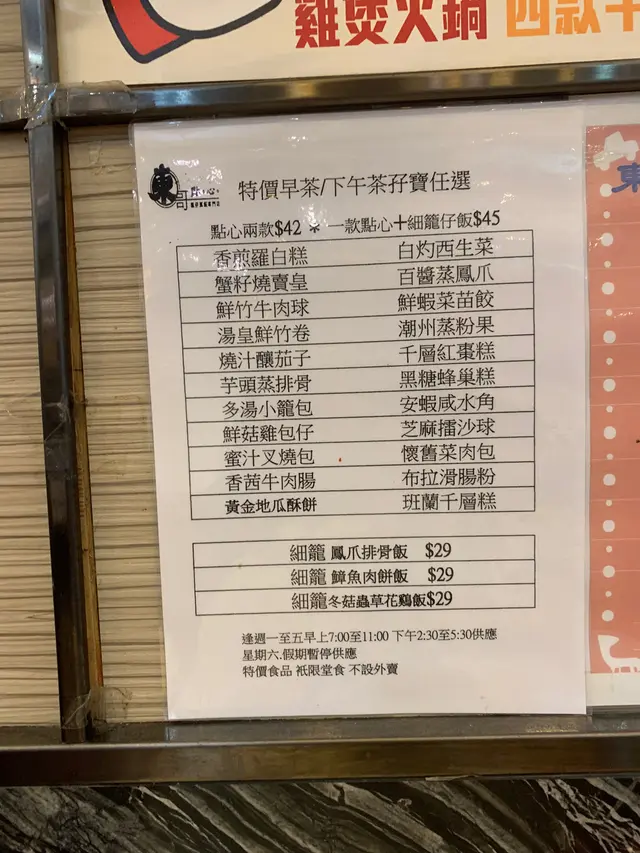 雞煲火鍋 四款
東哥點心
特價早茶/下午茶孖寶任選
點心兩款$42 * 一款點心+細籠仔飯$45
香煎羅白糕 白灼西生菜
蟹籽燒賣皇 百醬蒸鳳爪
鮮竹牛肉球 鮮蝦菜苗餃
湯皇鮮竹卷 潮州蒸粉果
燒汁釀茄子 千層紅棗糕
芋頭蒸排骨 黑糖蜂巢糕
多湯小籠包 安蝦咸水角
鮮菇雞包仔 芝麻擂沙球
蜜汁叉燒包 懷舊菜肉包
香茜牛肉腸 布拉滑腸粉
黃金地瓜酥餅 班蘭千層糕
細籠 鳳爪排骨飯 $29
細籠 鱆魚肉餅飯 $29
細籠冬菇蟲草花鷄飯$29
逢週一至五早上7:00至11:00 下午2:30至5:30供應
星期六.假期暫停供應
特價食品 衹限堂食 不設外賣
東